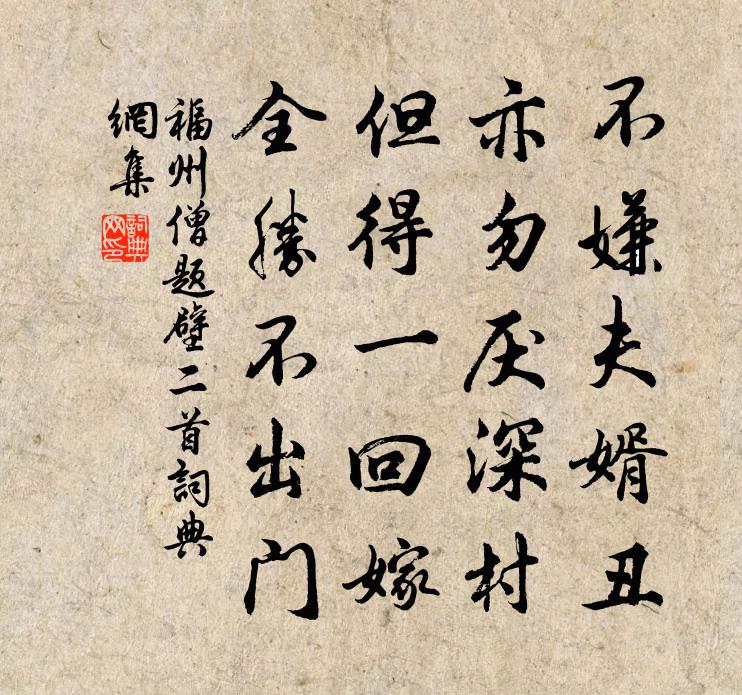 不嫌夫婿丑
亦勿厌深村
但得一回嫁
全勝不出门
福州僧题壁二首詞典
網集
詞典網印